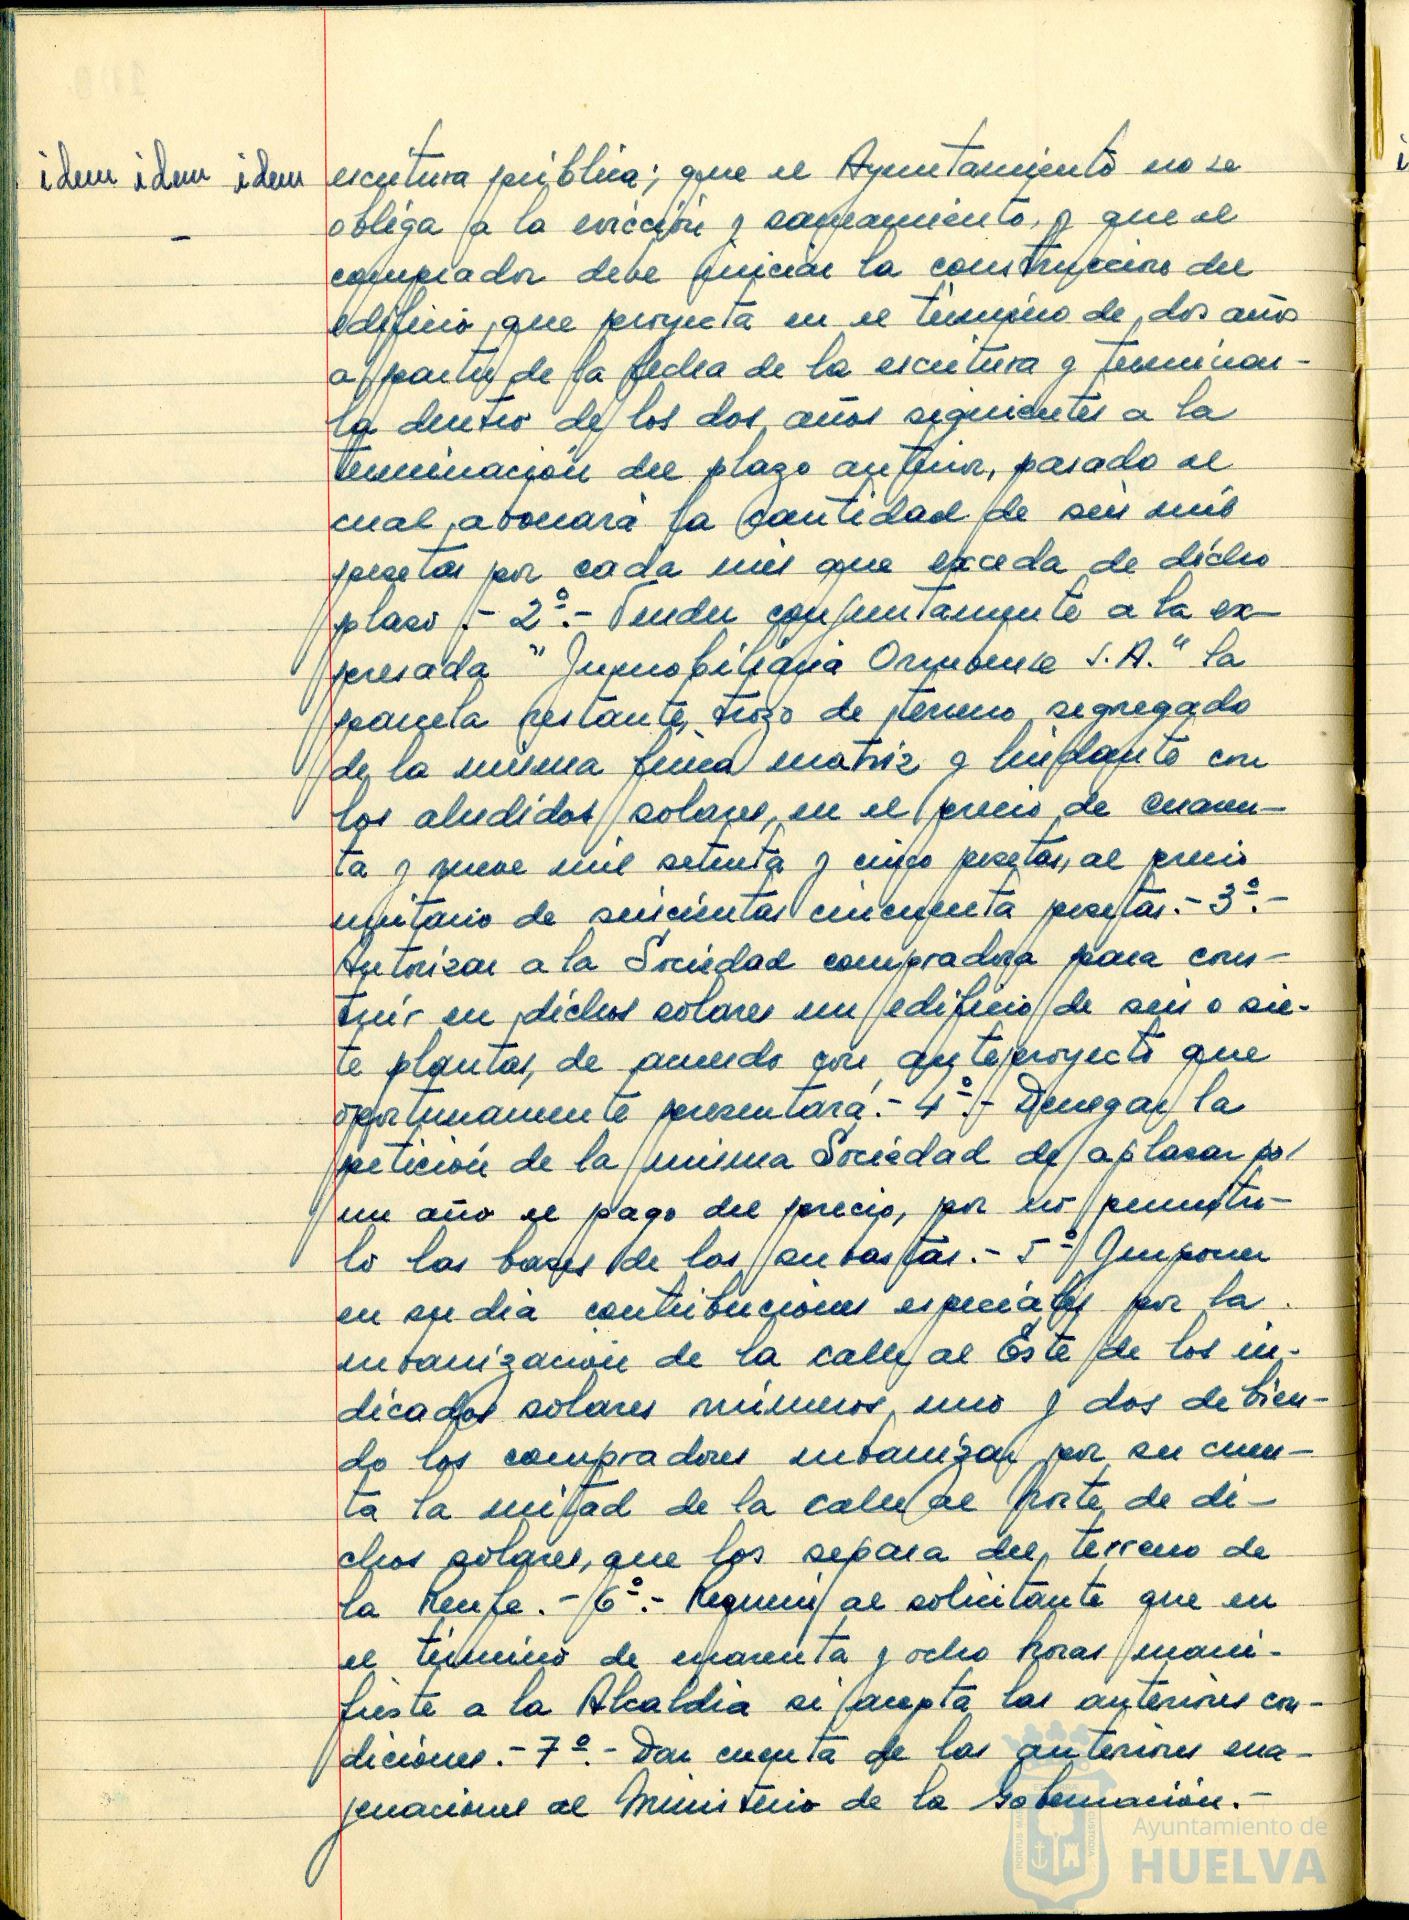 idem idem idem
-
escritura pública; que el Ayuntamiento no se
obliga a la evicción y saneamiento, y que el
comprador debe iniciar la construccion del
edificio que proyecta en el término de dos años
a partir de la fecha de la escritura y terminar-
la dentro de los dos años siguientes a la
terminación del plazo anterior, pasado el
cual abonará la cantidad de seis mil
pesetas por cada mes que exceda de dicho
plazo.- 2º.- Vender conjuntamente a la ex-
presada "Inmobiliaria Onubense S.A." la
parcela restante, trozo de terreno segregado
de la misma finca matriz y lindante con
los aludidos solares, en el precio de cuaren-
ta y nueve mil setenta y cinco pesetas, al precio
unitario de seiscientas cincuenta pesetas.- 3º.-
Autorizar a la Sociedad compradora para cons-
truir en dichos solares un edificio de seis o sie-
te plantas, de acuerdo con anteproyecto que
oportunamente presentará.- 4º.- Denegar la
petición de la misma Sociedad de aplazar por
un año el pago del precio, por no permitir-
lo las bases de las subastas.- 5º- Imponer
en su dia contribuciones especiales por la
urbanización de la calle al Este de los in-
dicados solares números uno y dos debien-
do los compradores urbanizar por su cuen-
ta la mitad de la calle al Norte de di-
chos solares, que los separa del terreno de
la Renfe.- 6º.- Requerir al solicitante que en
el término de cuarenta y ocho horas mani-
fieste a la Alcaldia si acepta las anteriores con-
diciones.- 7º.- Dar cuenta de las anteriores ena-
jenaciones al Ministerio de la Gobernación.-
Ayuntamiento de
HUELVA